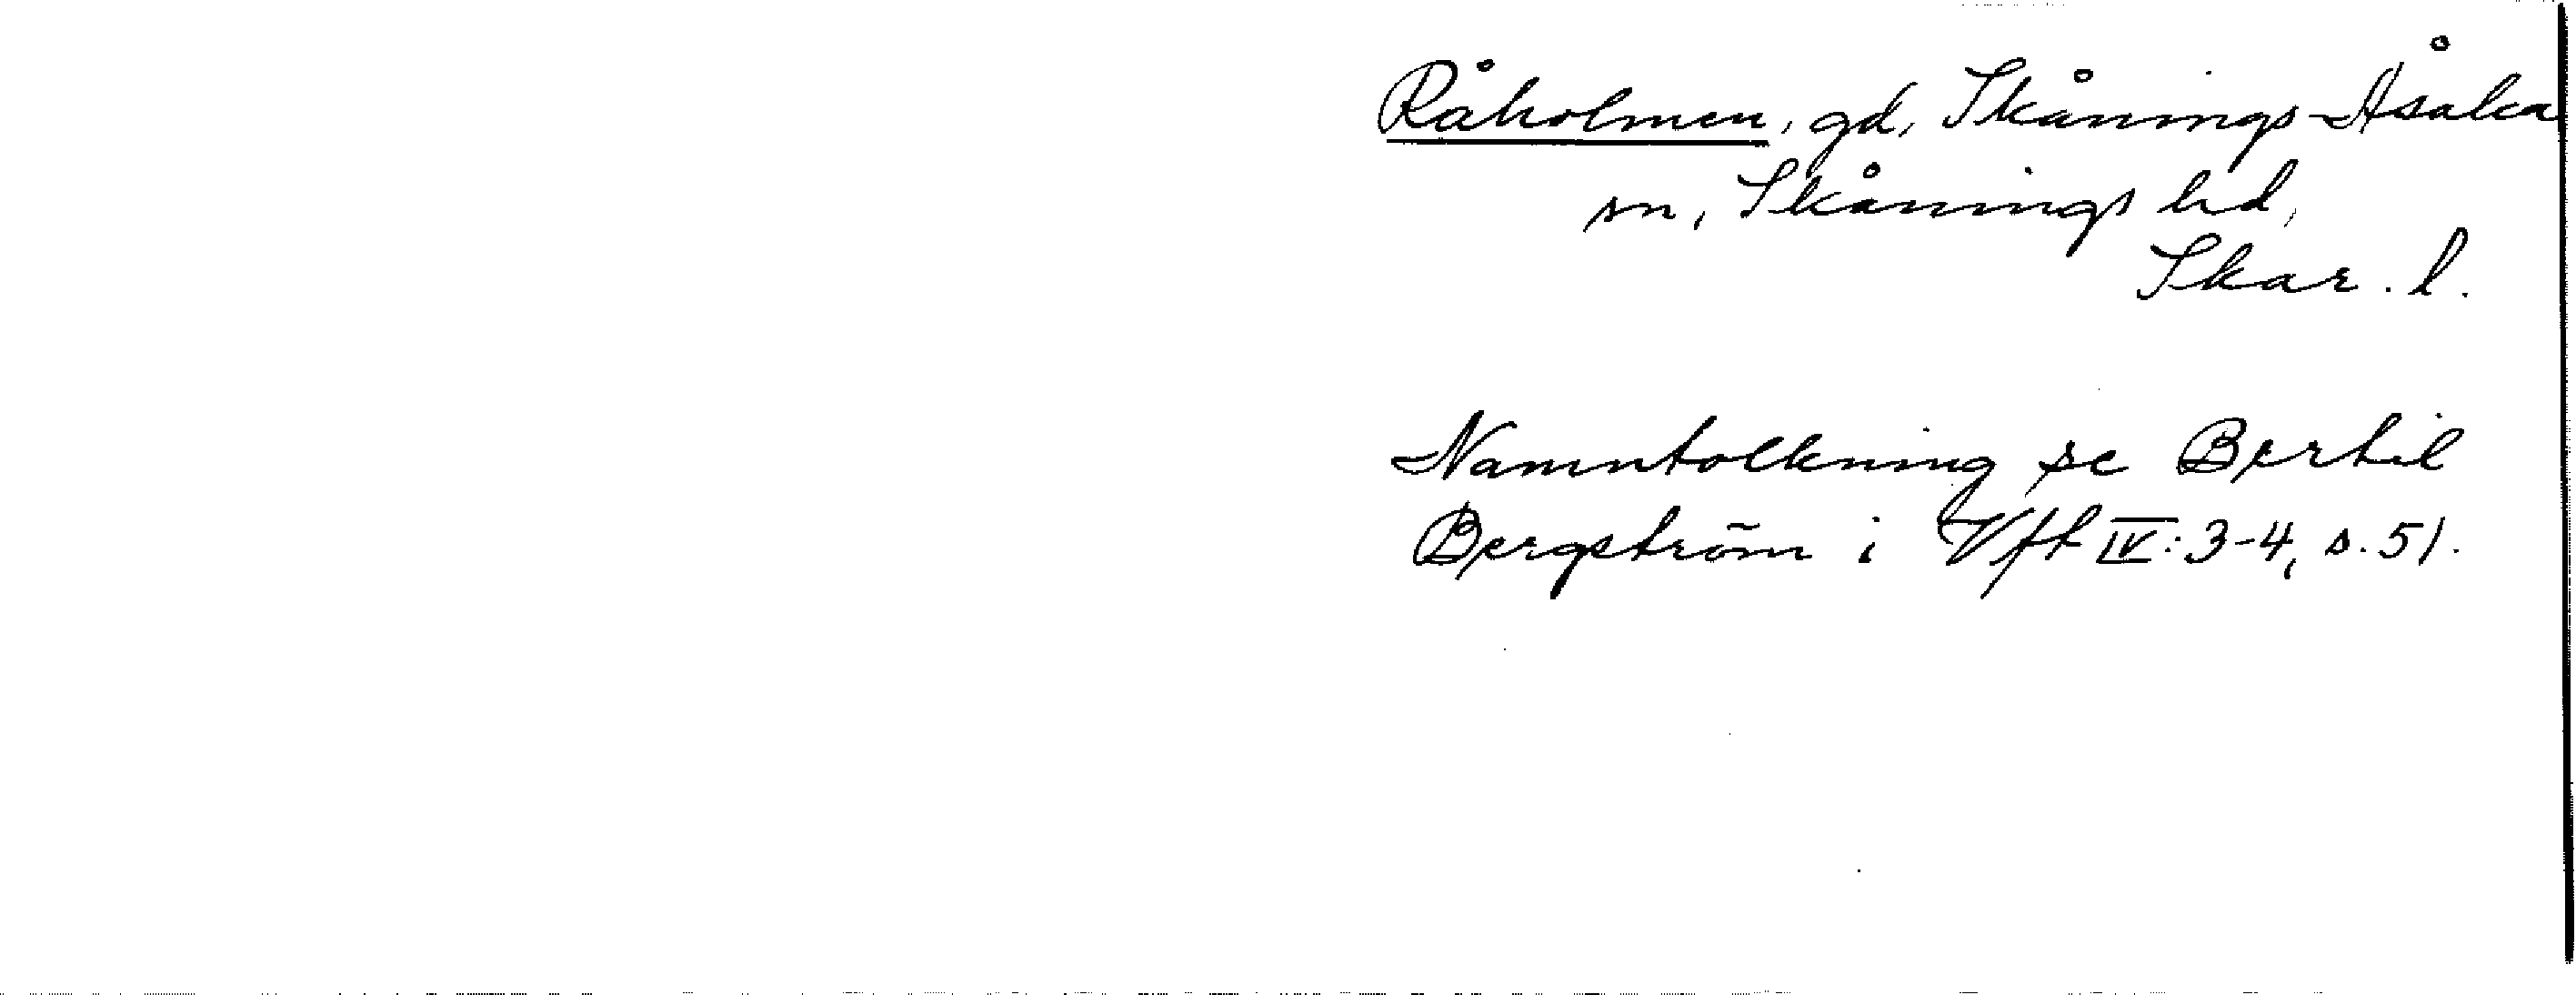 Råholmen, gd, Skånings-Åsaka
sn, Skånings hd,
Skar. l.
Namntolkning se Bertil
Bergström i Vft IV: 3-4, s. 51.